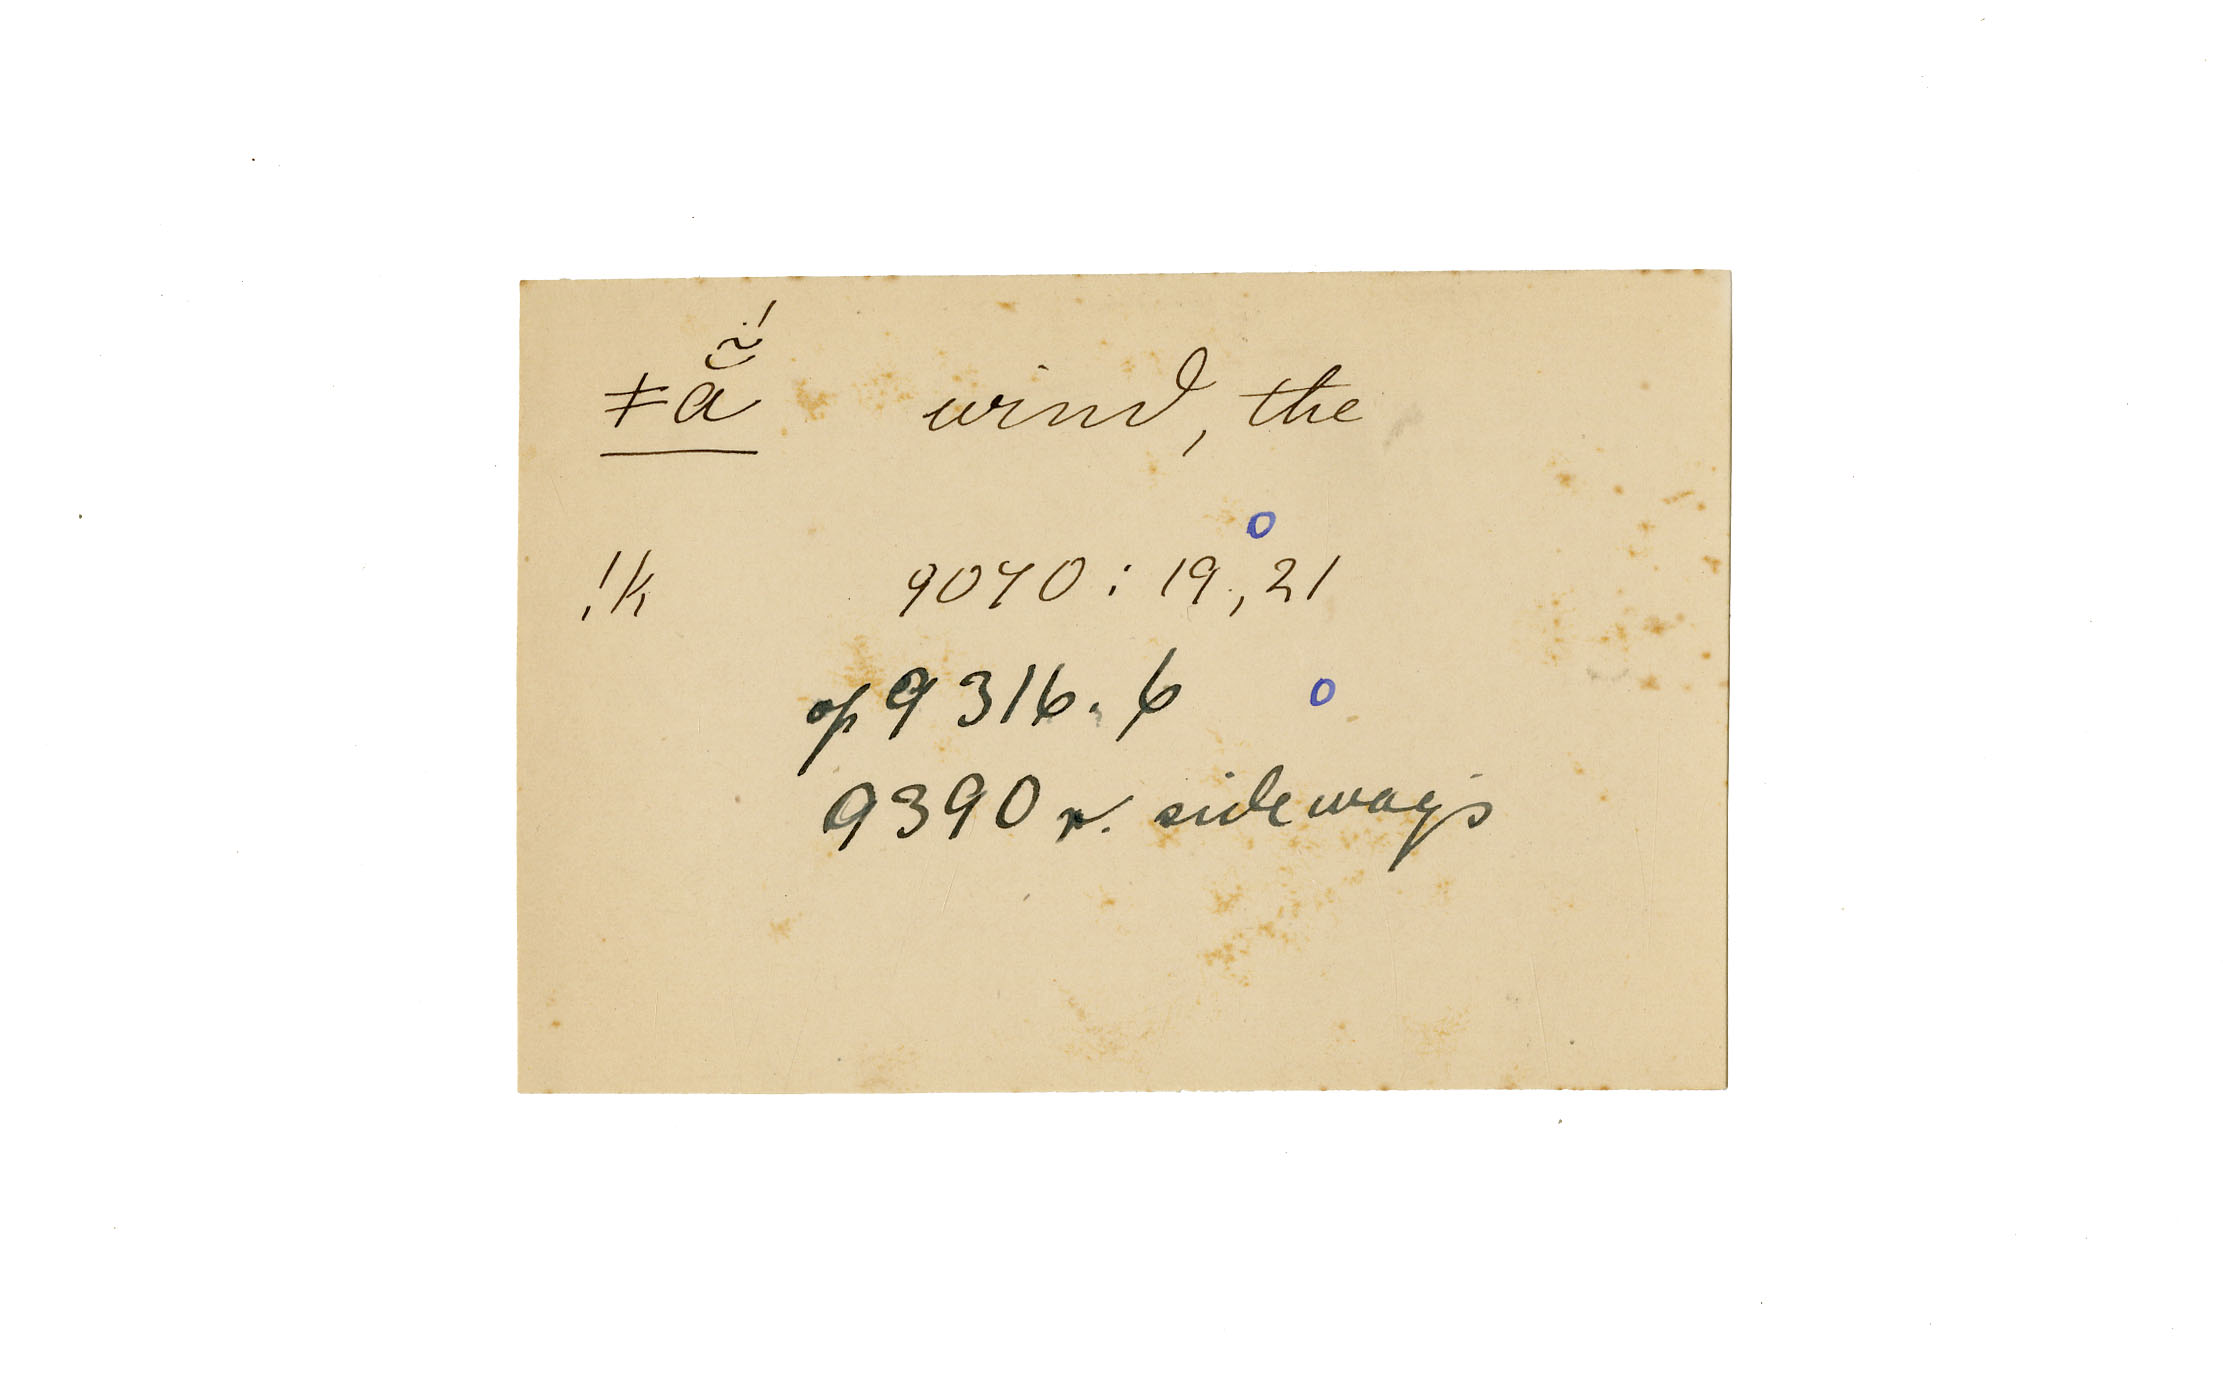 ǂã̆́ wind, the
o
!k 9070 : 19, 21
op 9316. 6 o
9390 r. sideways